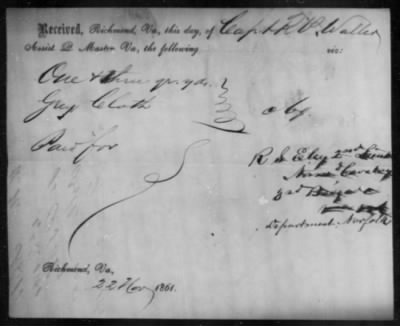 Received, Richmond, Va., this day, of Capt R. P. Waller
Assist Q. Master Va, the following viz:
One & three qr. yds.
Grey Cloth
Paid for
R S Eley 2nd Lieut
Cavalry
3rd Brigade
Department Norfolk
Richmond, Va,
22 Nov 1861.